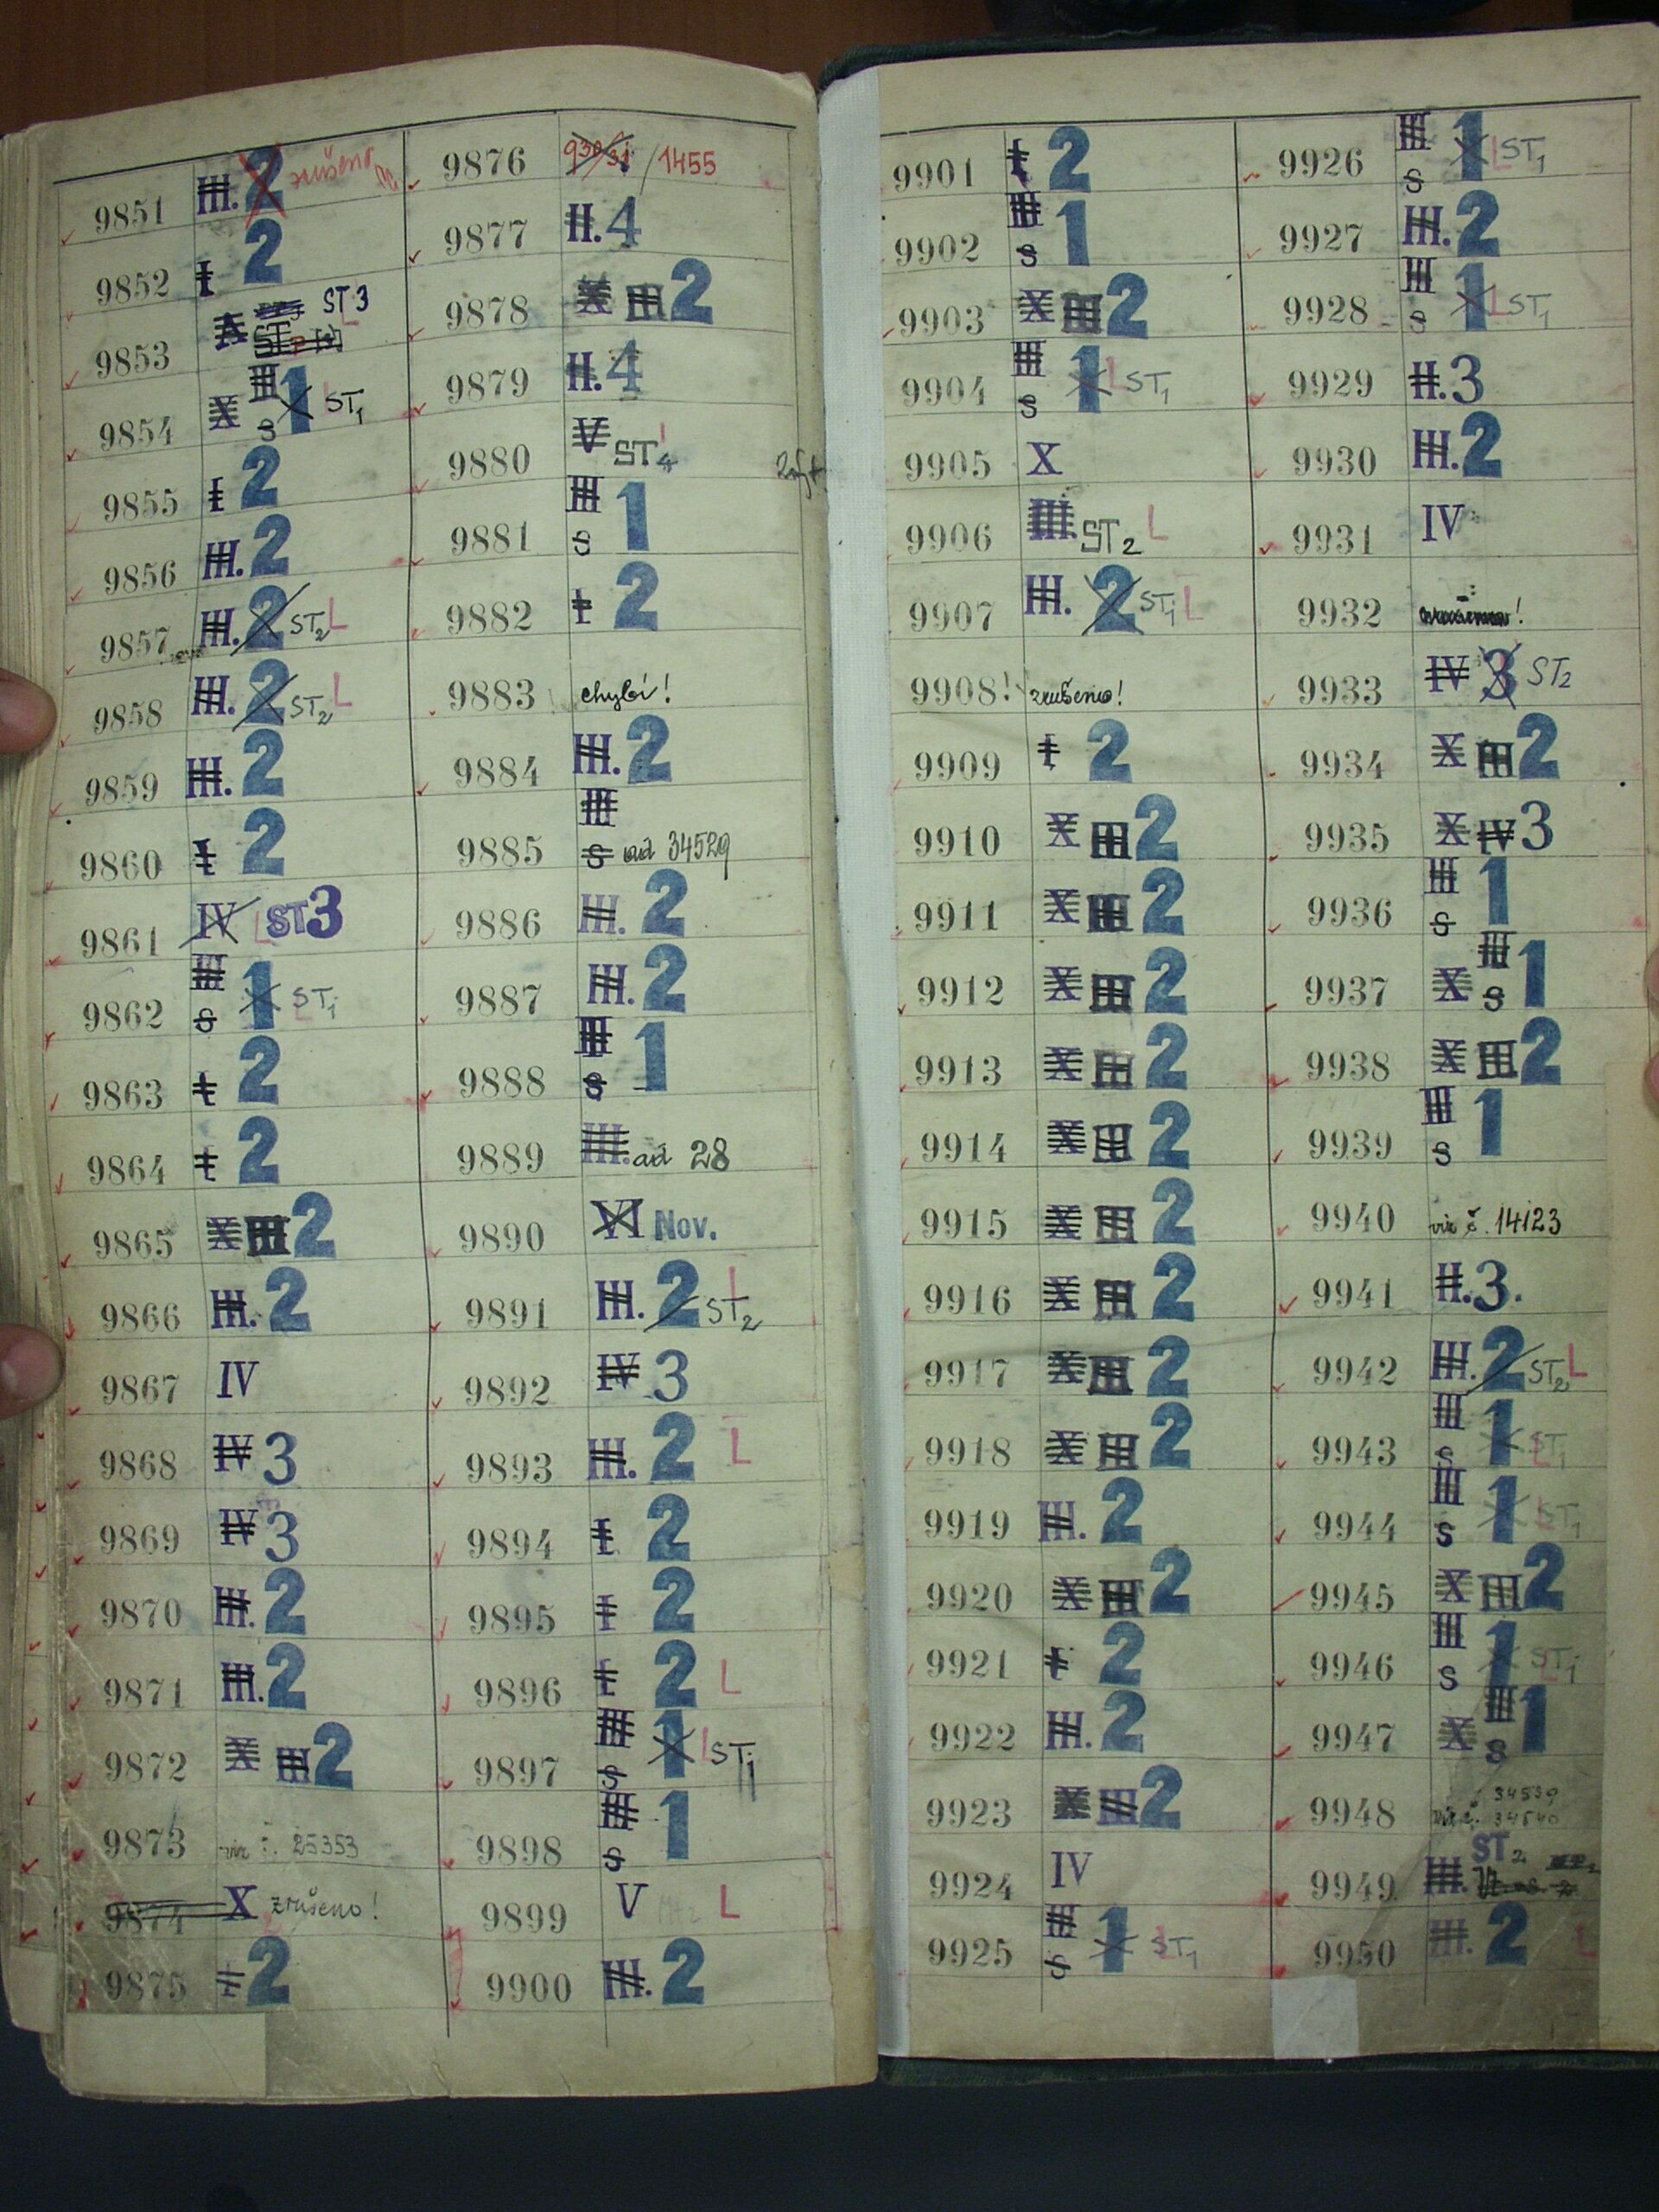 9851 III. 2 zrušeno
9852 I 2
9853 X ST3 L
9854 X III S 1 ST1
9855 I 2
9856 III. 2
9857 III. 2 ST2 L
9858 III. 2 ST2 L
9859 III. 2
9860 I 2
9861 IV L ST3
9862 III S 1 ST1 L
9863 I 2
9864 I 2
9865 X III 2
9866 III. 2
9867 IV
9868 IV 3
9869 IV 3
9870 III. 2
9871 III. 2
9872 X III 2
9873 viz č. 25353
9874 X zrušeno!
9875 I 2
9876 930/31 / 1455
9877 II. 4
9878 X III 2
9879 II. 4
9880 V ST4
9881 III S 1
9882 I 2
9883 chybí!
9884 III. 2
9885 III S ad 34529
9886 III. 2
9887 III. 2
9888 III S 1
9889 III. ad 28
9890 VI Nov.
9891 III. 2 ST2 L
9892 IV 3
9893 III. 2 L
9894 I 2
9895 I 2
9896 I 2 L
9897 III S 1 L ST1
9898 III S 1
9899 V L
9900 III. 2
9901 I 2
9902 III S 1
9903 X III 2
9904 III S 1 L ST1
9905 X
9906 III. ST2 L
9907 III. 2 ST1 L
9908! zrušeno!
9909 I 2
9910 X III 2
9911 X III 2
9912 X III 2
9913 X III 2
9914 X III 2
9915 X III 2
9916 X III 2
9917 X III 2
9918 X III 2
9919 III. 2
9920 X III 2
9921 I 2
9922 III. 2
9923 X III 2
9924 IV
9925 III S 1 L ST1
9926 III S 1 L ST1
9927 III. 2
9928 III S 1 L ST1
9929 II. 3
9930 III. 2
9931 IV
9932
9933 IV 3 ST2
9934 X III 2
9935 X IV 3
9936 III S 1
9937 X III S 1
9938 X III 2
9939 III S 1
9940 viz č. 14123
9941 II. 3.
9942 III. 2 ST2 L
9943 III S 1 L ST1
9944 III S 1 L ST1
9945 X III 2
9946 III S 1 L ST1
9947 X III S 1
9948 viz č. 34539 34540
9949 III. ST2
9950 III. 2 L